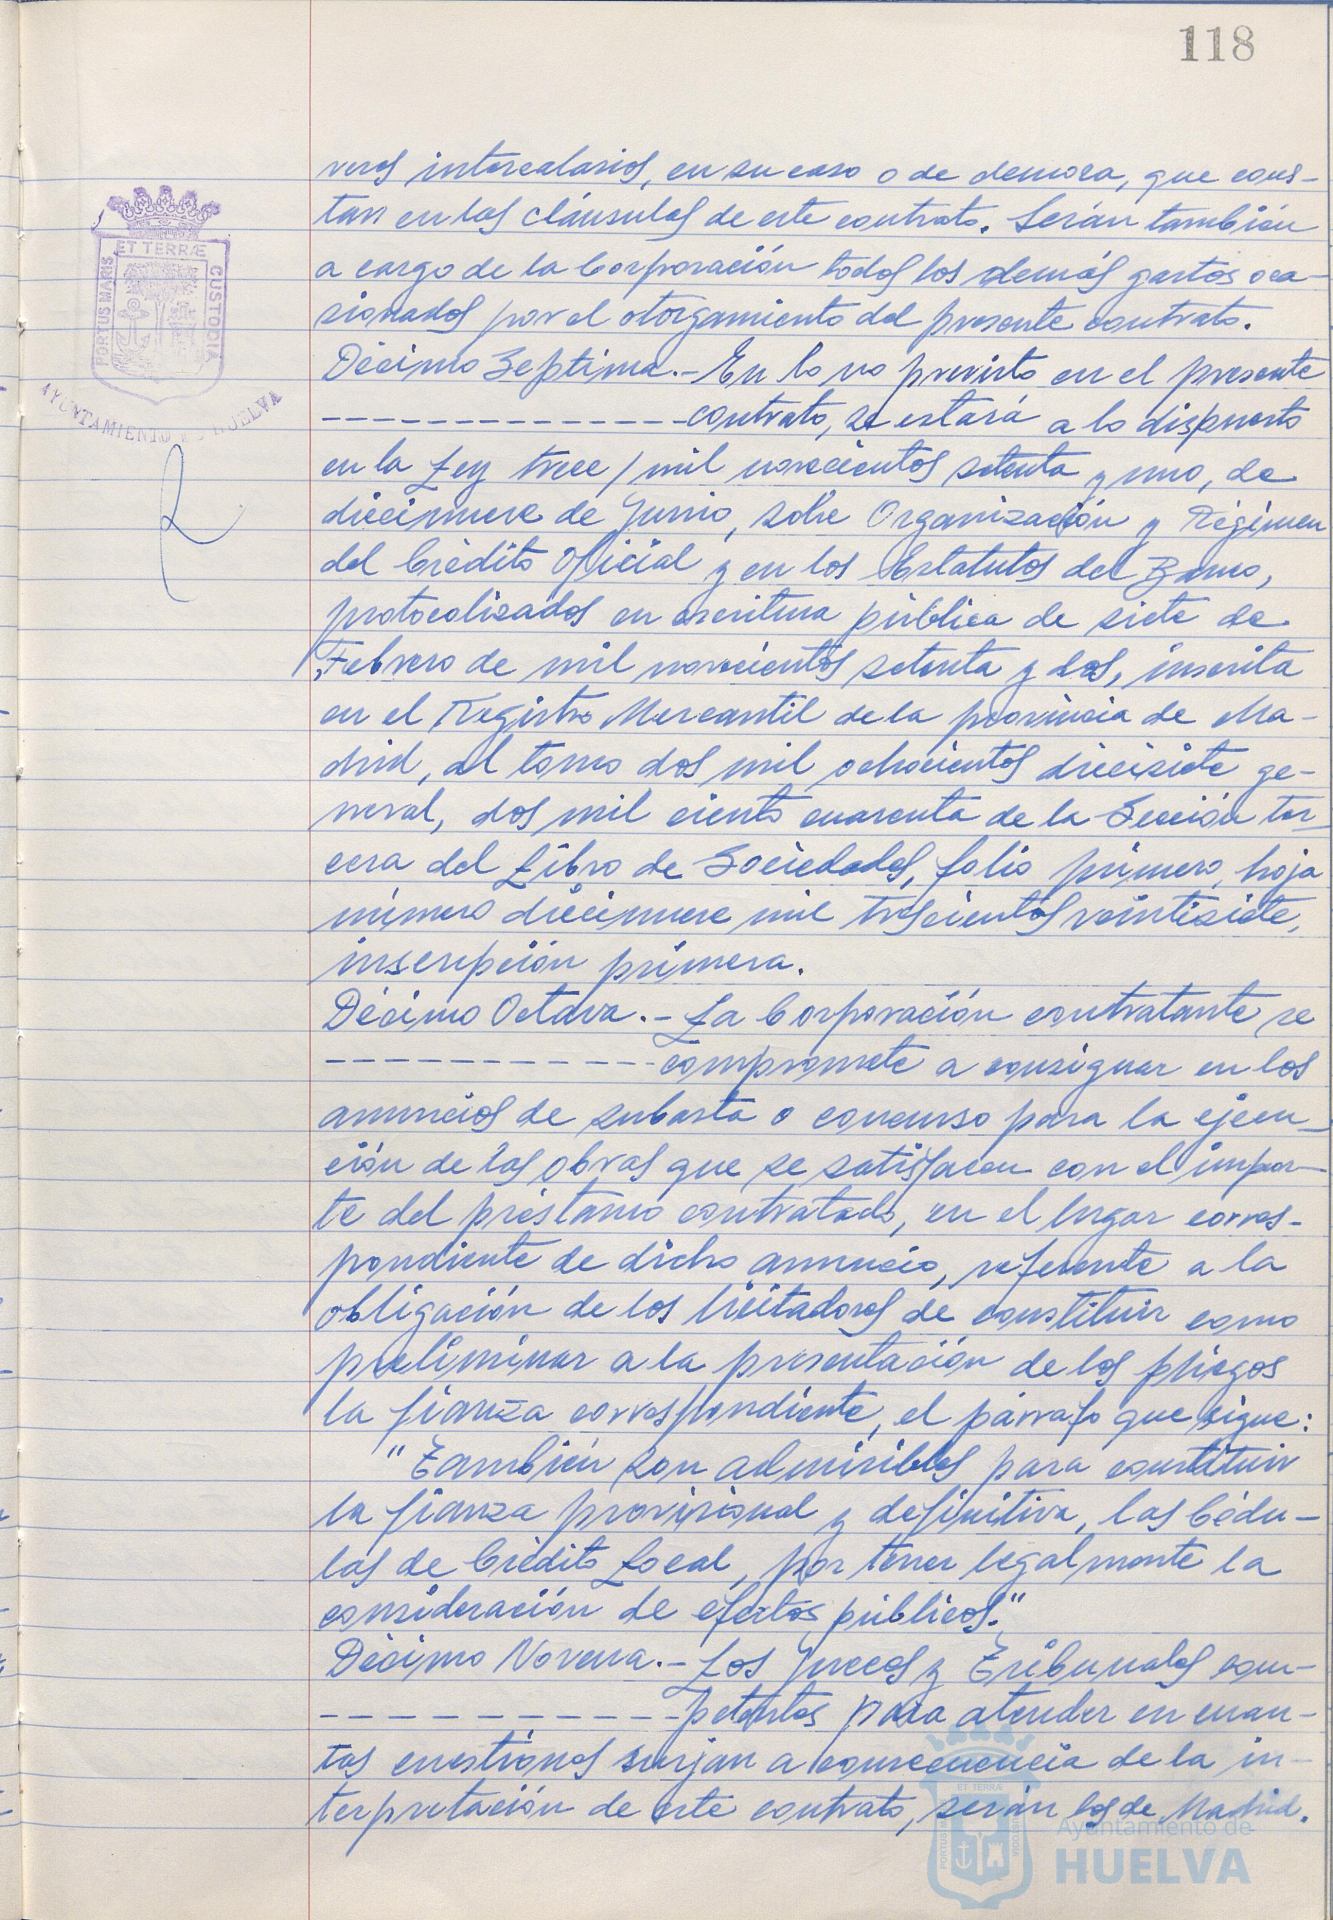 118
reses intercalarios, en su caso o de demora, que cons-
tan en las cláusulas de este contrato. Serán también
a cargo de la Corporación todos los demás gastos oca-
sionados por el otorgamiento del presente contrato.
Décimo Septima.- En lo no previsto en el presente
-------------- contrato, se estará a lo dispuesto
en la Ley trece/mil novecientos setenta y uno, de
diecinueve de Junio, sobre Organización y Régimen
del Crédito Oficial y en los Estatutos del Banco,
protocolizados en escritura pública de siete de
Febrero de mil novecientos setenta y dos, inscrita
en el Registro Mercantil de la provincia de Ma-
drid, al tomo dos mil ochocientos diecisiete ge-
neral, dos mil ciento cuarenta de la Sección ter-
cera del Libro de Sociedades, folio primero, hoja
número diecinueve mil trescientos veintisiete,
inscripción primera.
Décimo Octava.- La Corporación contratante se
------------ compromete a consignar en los
anuncios de subasta o concurso para la ejecu-
ción de las obras que se satisfacen con el impor-
te del préstamo contratado, en el lugar corres-
pondiente de dicho anuncio, referente a la
obligación de los licitadores de constituir como
preliminar a la presentación de los pliegos
la fianza correspondiente, el párrafo que sigue:
"También son admisibles para constituir
la fianza provisional y definitiva, las Cédu-
las de Crédito Local, por tener legalmente la
consideración de efectos públicos."
Décimo Novena.- Los Jueces y Tribunales com-
------------ petentes para atender en cuan-
tas cuestiones surjan a consecuencia de la in-
terpretación de este contrato, serán los de Madrid.
ET TERRÆ
PORTUS MARIS
CUSTODIA
AYUNTAMIENTO DE HUELVA
Ayuntamiento de
HUELVA